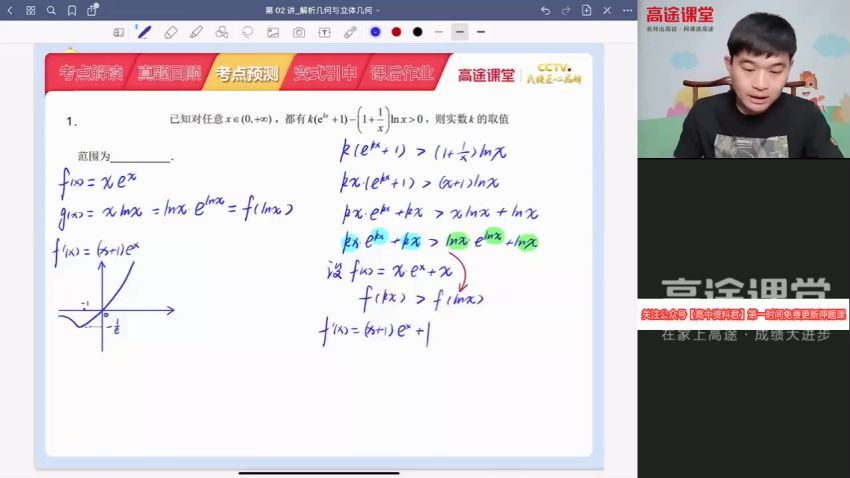 第 02 讲_解析几何与立体几何
高途课堂
名师出高徒·网课选高途
考点解读 真题回顾 考点预测 变式引申 课后作业 高途课堂 CCTV. 民族匠心品牌
1. 已知对任意 x∈(0,+∞)，都有 k(e^{kx}+1)-(1+1/x)ln x>0，则实数 k 的取值
范围为__________.
f(x) = x e^x
g(x) = x·lnx = lnx·e^{lnx} = f(lnx)
f'(x) = (x+1)e^x
-1
0
-1/e
k(e^{kx}+1) > (1+1/x)lnx
kx·(e^{kx}+1) > (x+1)lnx
kx·e^{kx}+kx > xlnx+lnx
kx·e^{kx}+kx > lnx·e^{lnx}+lnx
设 f(x) = x·e^x+x
f(kx) > f(lnx)
f'(x) = (x+1)e^x+1
高途课堂
关注公众号【高中资料君】第一时间免费更新押题课
在家上高途·成绩大进步